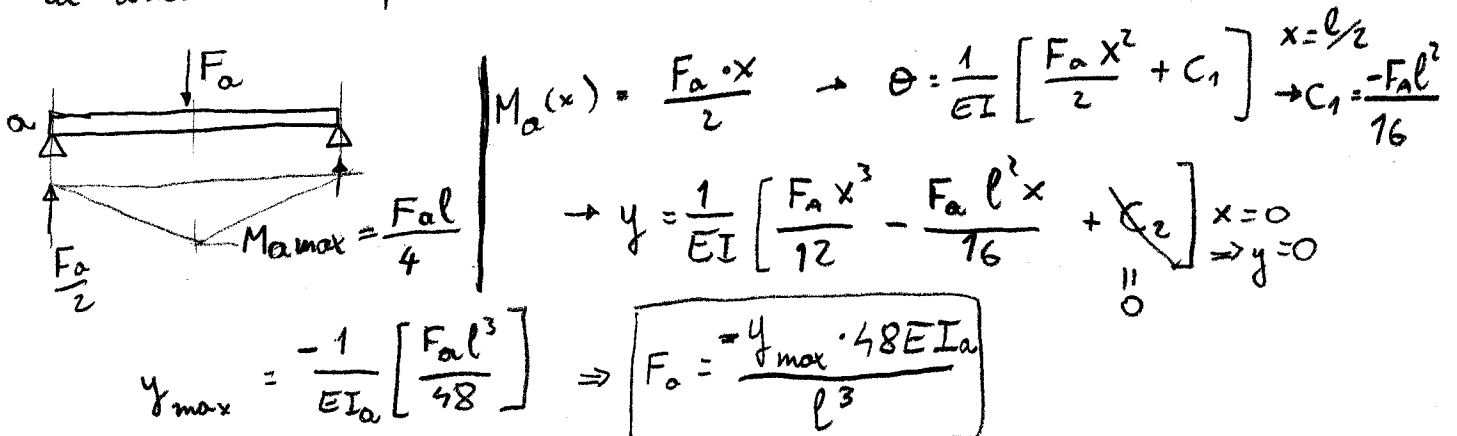 F_a
a
M_a max = F_a l / 4
F_a / 2
M_a(x) = F_a · x / 2 → θ = 1/EI [ F_a x² / 2 + C_1 ] x = l/2 → C_1 = -F_A l² / 16
→ y = 1/EI [ F_A x³ / 12 - F_a l² x / 16 + C_2 ] x = 0 ⇒ y = 0
= 0
y_max = -1/EI_a [ F_a l³ / 48 ] ⇒ F_a = -y_max · 48EI_a / l³